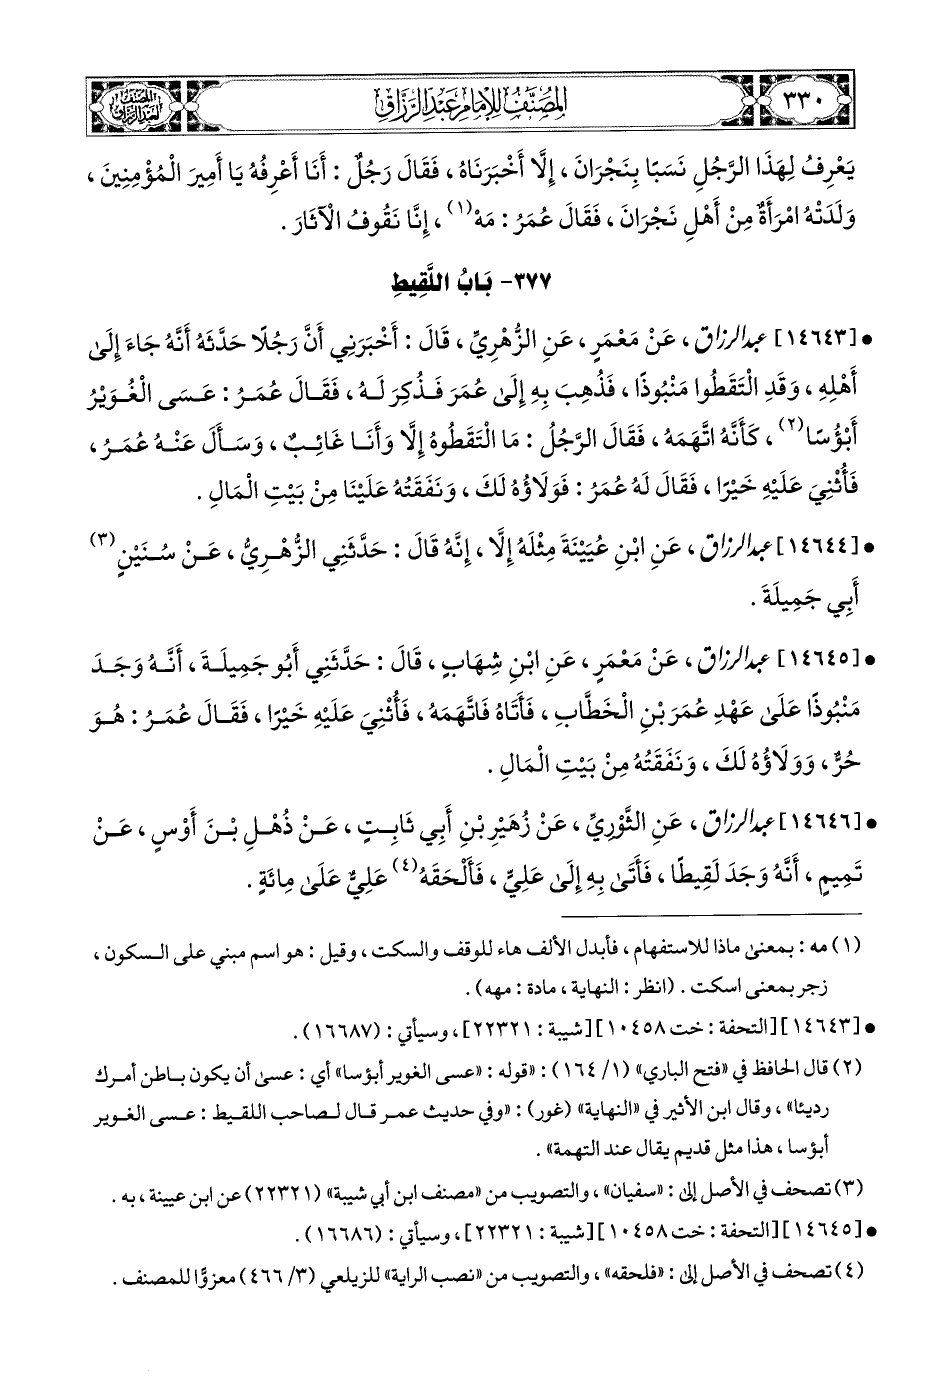 ٣٣٠
المصنف للإمام عبد الرزاق
المصنف لعبد الرزاق
يَعْرِفُ لِهَذَا الرَّجُلِ نَسَبًا بِنَجْرَانَ ، إِلَّا أَخْبَرَنَاهُ ، فَقَالَ رَجُلٌ : أَنَا أَعْرِفُهُ يَا أَمِيرَ الْمُؤْمِنِينَ ،
وَلَدَتْهُ امْرَأَةٌ مِنْ أَهْلِ نَجْرَانَ ، فَقَالَ عُمَرُ : مَهْ(١) ، إِنَّا نَقُوفُ الْآثَارَ .
٣٧٧- بَابُ اللَّقِيطِ
• [١٤٦٤٣] عبد الرزاق ، عَنْ مَعْمَرٍ ، عَنِ الزُّهْرِيِّ ، قَالَ : أَخْبَرَنِي أَنَّ رَجُلًا حَدَّثَهُ أَنَّهُ جَاءَ إِلَىٰ
أَهْلِهِ ، وَقَدِ الْتَقَطُوا مَنْبُوذًا ، فَذُهِبَ بِهِ إِلَىٰ عُمَرَ فَذُكِرَ لَهُ ، فَقَالَ عُمَرُ : عَسَى الْغُوَيْرُ
أَبْؤُسًا(٢) ، كَأَنَّهُ اتَّهَمَهُ ، فَقَالَ الرَّجُلُ : مَا الْتَقَطُوهُ إِلَّا وَأَنَا غَائِبٌ ، وَسَأَلَ عَنْهُ عُمَرُ ،
فَأُثْنِيَ عَلَيْهِ خَيْرًا ، فَقَالَ لَهُ عُمَرُ : فَوَلَاؤُهُ لَكَ ، وَنَفَقَتُهُ عَلَيْنَا مِنْ بَيْتِ الْمَالِ .
• [١٤٦٤٤] عبد الرزاق ، عَنِ ابْنِ عُيَيْنَةَ مِثْلَهُ إِلَّا ، إِنَّهُ قَالَ : حَدَّثَنِي الزُّهْرِيُّ ، عَنْ سُنَيْنٍ(٣)
أَبِي جَمِيلَةَ .
• [١٤٦٤٥] عبد الرزاق ، عَنْ مَعْمَرٍ ، عَنِ ابْنِ شِهَابٍ ، قَالَ : حَدَّثَنِي أَبُو جَمِيلَةَ ، أَنَّهُ وَجَدَ
مَنْبُوذًا عَلَىٰ عَهْدِ عُمَرَ بْنِ الْخَطَّابِ ، فَأَتَاهُ فَاتَّهَمَهُ ، فَأُثْنِيَ عَلَيْهِ خَيْرًا ، فَقَالَ عُمَرُ : هُوَ
حُرٌّ ، وَوَلَاؤُهُ لَكَ ، وَنَفَقَتُهُ مِنْ بَيْتِ الْمَالِ .
• [١٤٦٤٦] عبد الرزاق ، عَنِ الثَّوْرِيِّ ، عَنْ زُهَيْرِ بْنِ أَبِي ثَابِتٍ ، عَنْ ذُهْلِ بْنَ أَوْسٍ ، عَنْ
تَمِيمٍ ، أَنَّهُ وَجَدَ لَقِيطًا ، فَأَتَىٰ بِهِ إِلَىٰ عَلِيٍّ ، فَأَلْحَقَهُ(٤) عَلِيٌّ عَلَىٰ مِائَةٍ .
(١) مه : بمعنىٰ ماذا للاستفهام ، فأبدل الألف هاء للوقف والسكت ، وقيل : هو اسم مبني على السكون ،
زجر بمعنى اسكت . (انظر : النهاية ، مادة : مهه) .
• [١٤٦٤٣] [التحفة : خت ١٠٤٥٨] [شيبة : ٢٢٣٢١] ، وسيأتي : (١٦٦٨٧) .
(٢) قال الحافظ في «فتح الباري» (١/ ١٦٤) : «قوله : «عسى الغوير أبؤسا» أي : عسىٰ أن يكون باطن أمرك
رديئا» ، وقال ابن الأثير في «النهاية» (غور) : «وفي حديث عمر قال لصاحب اللقيط : عسى الغوير
أبؤسا ، هذا مثل قديم يقال عند التهمة» .
(٣) تصحف في الأصل إلىٰ : «سفيان» ، والتصويب من «مصنف ابن أبي شيبة» (٢٢٣٢١) عن ابن عيينة ، به .
• [١٤٦٤٥] [التحفة : خت ١٠٤٥٨] [شيبة : ٢٢٣٢١] ، وسيأتي : (١٦٦٨٦) .
(٤) تصحف في الأصل إلىٰ : «فلحقه» ، والتصويب من «نصب الراية» للزيلعي (٣/ ٤٦٦) معزوًا للمصنف .